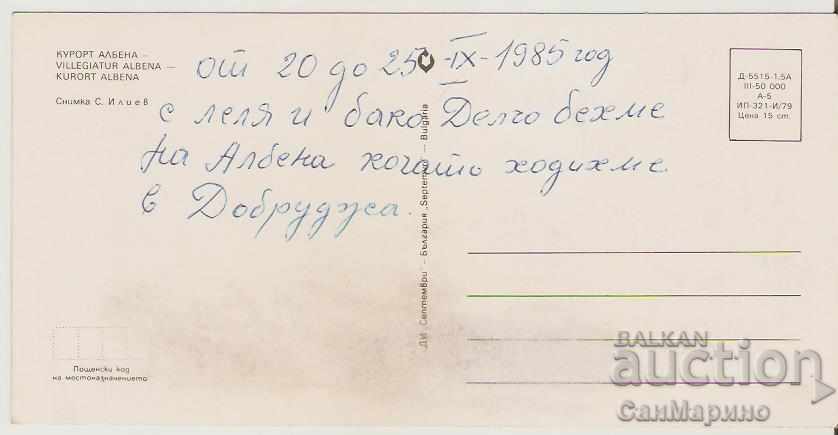 КУРОРТ АЛБЕНА –
VILLEGIATUR ALBENA –
KURORT ALBENA
Снимка С. Илиев
от 20 до 25 -IX- 1985 год
с леля и бако Делчо бехме
на Албена когато ходихме
в Добруджа.
Д-5515-1.5А
III-50 000
А-5
ИП-321-И/79
Цена 15 ст.
ДИ „Септември" – България „Septemvri" – Bulgaria
Пощенски код
на местоназначението
BALKAN
auction
СанМарино